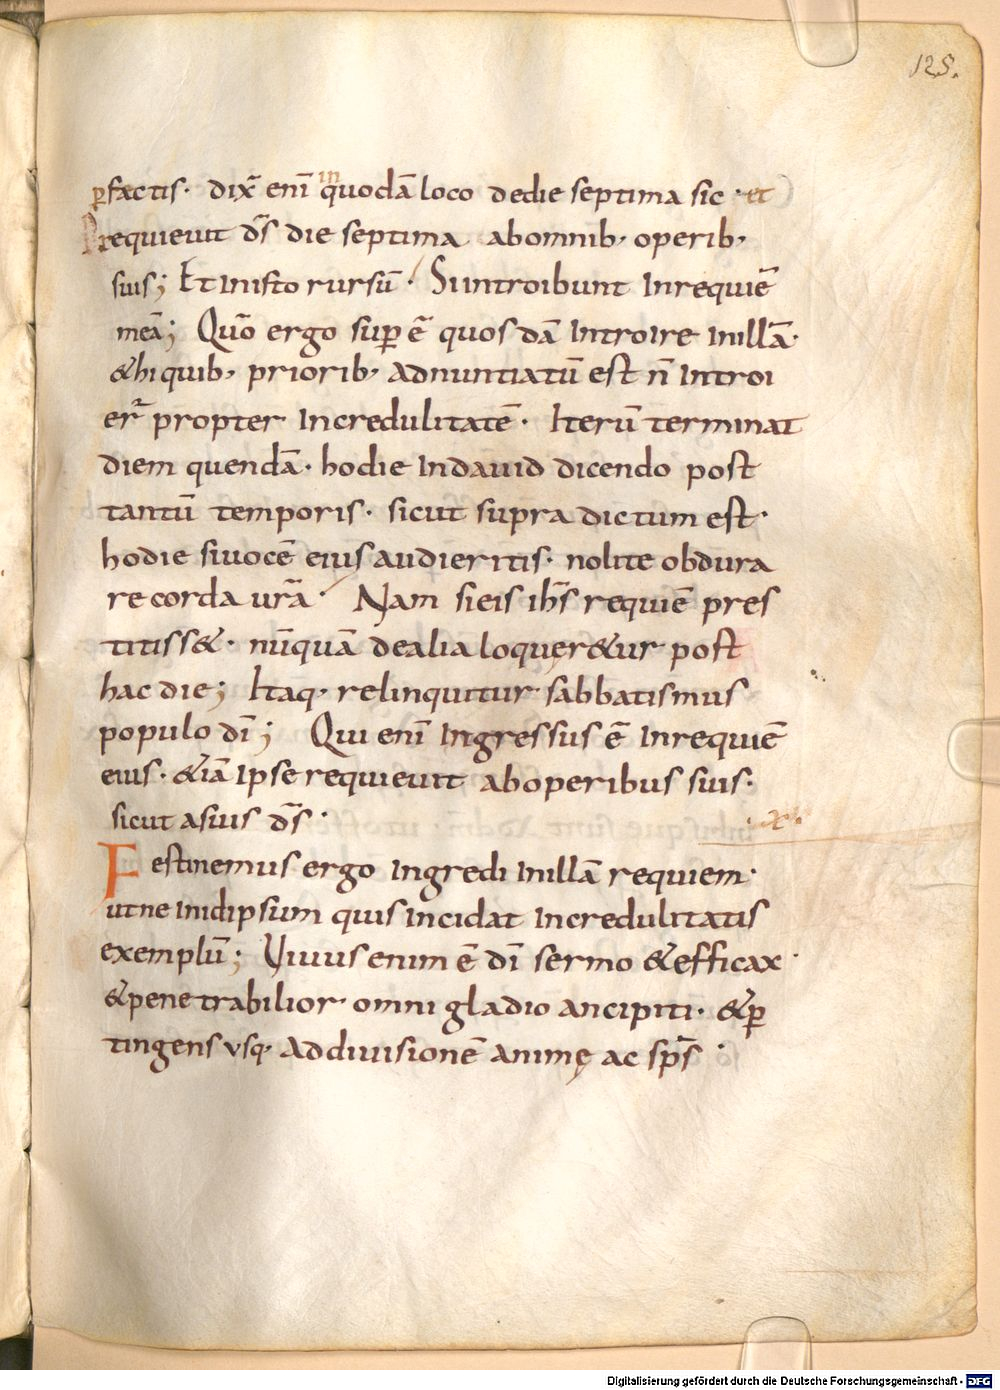 125.
ꝑfactis· dix̄ enī in quodā loco dedie septima sic· et
requieuit dr̄s die septima abomnib· operib·
suis; Et Inisto rursū· Siintroibunt Inrequiē
meā; Quō ergo suꝑ ē quos dā Introire Inillā·
&hi quib· priorib· Adnuntiatū est n̄ Introi
er̄ propter Incredulitatē· Iterū terminat
diem quendā· hodie Indauid dicendo post
tantū temporis· sicut supra dictum est·
hodie siuocē eius audieritis· nolite obdura
re corda ur̄a· Nam sieis ih̄s requiē pres
titiss&· nūquā dealia loquer&ur post
hac die; Itaq· relinquitur sabbatismus
populo dī; Qui enī Ingressus ē Inrequiē
eius· &iā Ipse requieuit aboperibus suis·
sicut asuis d̄s·
·x·
Festinemus ergo Ingredi Inillā requiem·
utne Inidipsum quis incidat Incredulitatis
exemplū; Uiuus enim ē dī sermo &efficax·
&penetrabilior omni gladio ancipiti· &ꝑ
tingens usq· Addiuisionē animę ac sp̄s·
Digitalisierung gefördert durch die Deutsche Forschungsgemeinschaft - DFG